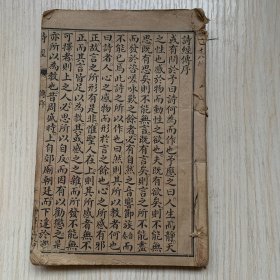 詩經傳序
或有問於予曰詩何為而作也予應之曰人生而靜天
之性也感於物而動性之欲也夫既有欲矣則不能無
思既有思矣則不能無言既有言矣則言之所不能盡
而發於咨嗟咏歎之餘者必有自然之音響節族而
不能已焉此詩之所以作也曰然則其所以教者何也
曰詩者人心之感物而形於言之餘也心之所感有邪
正故言之所形有是非惟聖人在上則其所感者無不
正而其言皆足以為教其或感之之雜而所發不能無
可擇者則上之人必思所以自反而因有以勸懲之是
亦所以為教也昔周盛時上自郊廟朝廷而下達於
詩經 傳序